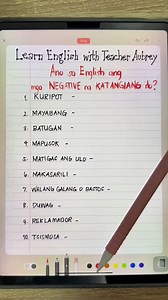 Learn English with Teacher Aubrey
Ano sa English ang
mga NEGATIVE na KATANGIANG ito?
1. KURIPOT -
2. MAYABANG -
3. BATUGAN -
4. MAPUSOK -
5. MATIGAS ANG ULO -
6. MAKASARILI -
7. WALANG GALANG O BASTOS -
8. DUWAG -
9. REKLAMADOR -
10. TSISMOSA -